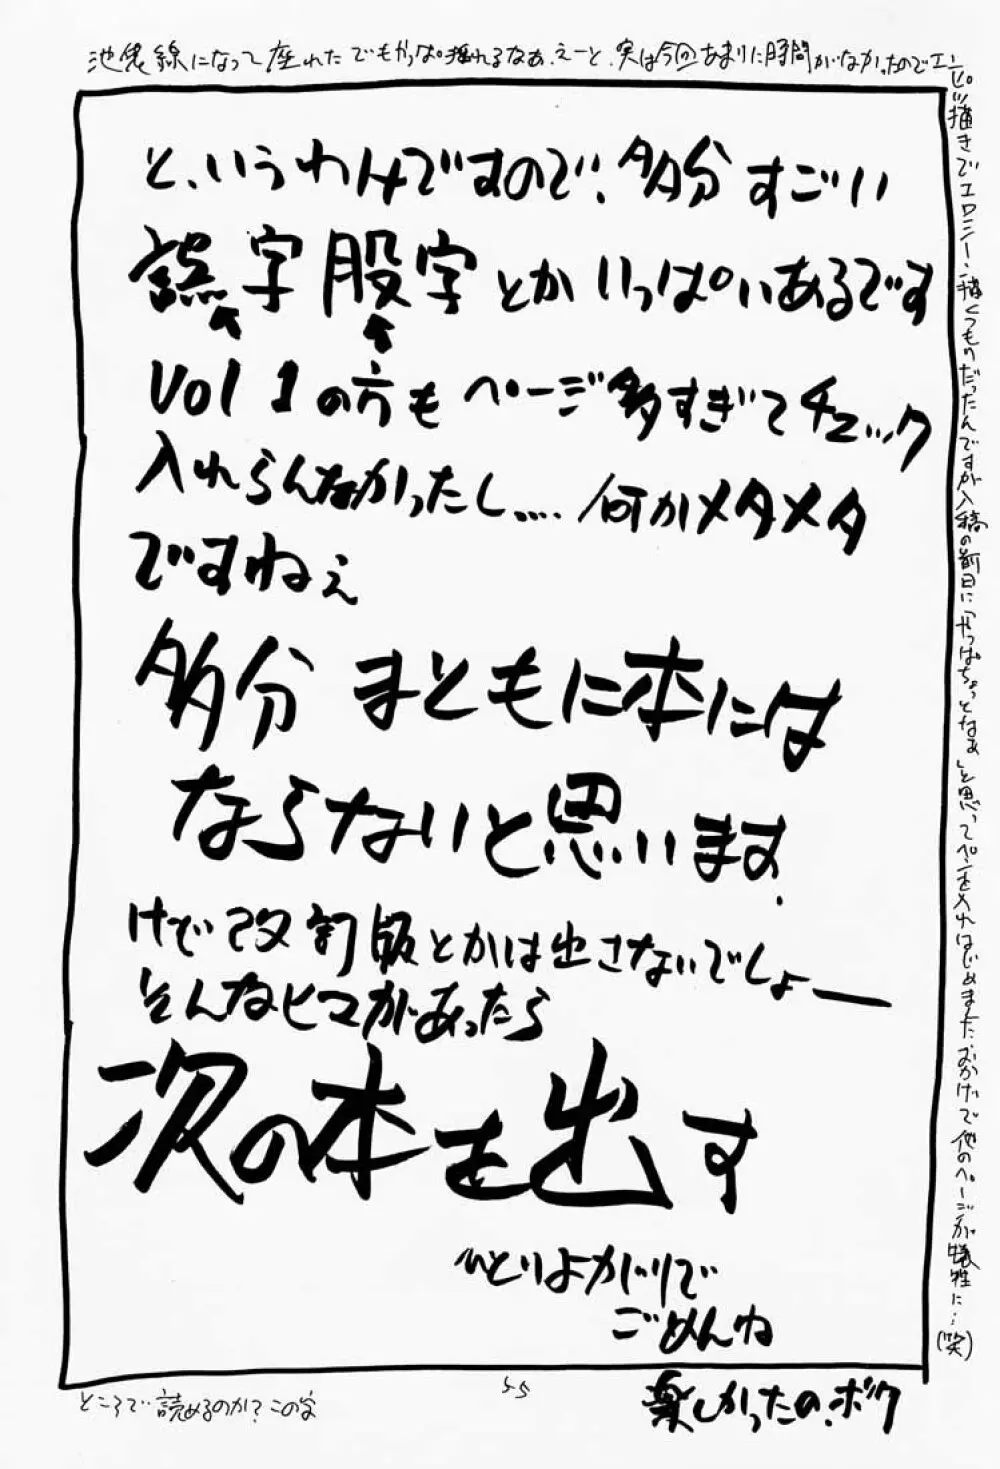 池袋線になって座れた でもやっぱ揺れるなぁ、えーと、実は今回あまりに時間がなかったのでエン
ピツ描きでエロシーン描くつもりだったんですが入稿の前日に「やっぱちょっとなぁ」と思ってペンを入れはじめました おかげで他のページが犠牲に…(笑)
と、いうわけですので、多分すごい
誤字股字とかいっぱいあるです
Vol 1の方もページ多すぎてチェック
入れらんなかったし.... 何かメタメタ
ですねぇ
多分まともに本には
ならないと思います.
けど改訂版とかは出さないでしょー
そんなヒマがあったら
次の本を出す
ひとりよがりで
ごめんね
楽しかったの、ボク
ところで読めるのか?この字
55